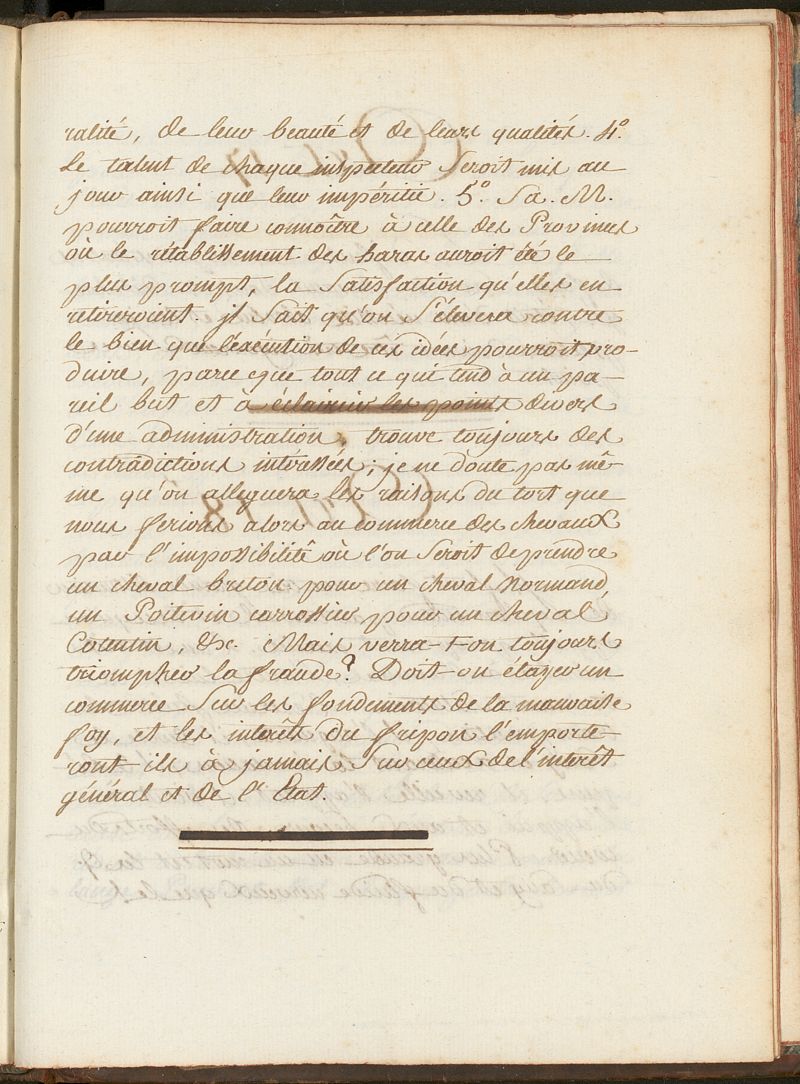 ralité, de leur beauté et de leurs qualités. 4.°
Le talent de chaque inspecteur Seroit mis au
jour ainsi que leur impéritie. 5.° Sa. M.
pourroit faire connoître à celle des Provinces
où le rétablissement des haras auroit été le
plus prompt, la Satisfaction qu'elles en
retireroient. jl Sait qu'on S'élevera contre
le bien que l'exécution de ces idées pourroit pro-
duire, parce que tout ce qui tend à un pa-
reil but et à éclaircir les points divers
d'une administration, trouve toujours des
contradictions intéressées; je ne doute pas mê-
me qu'on alleguera les raisons du tort que
nous ferions alors au commerce des chevaux
par l'impossibilité où l'on Seroit de prendre
un cheval breton pour un cheval Normand,
un Poitevin carrossier pour un cheval
Cotentin, &c. Mais verra-t-on toujours
triompher la fraude? Doit-on étayer un
commerce Sur les fondements de la mauvaise
foy, et les interêts du fripon l'emporte-
ront ils à jamais Sur ceux de l'interêt
général et de l'Etat.